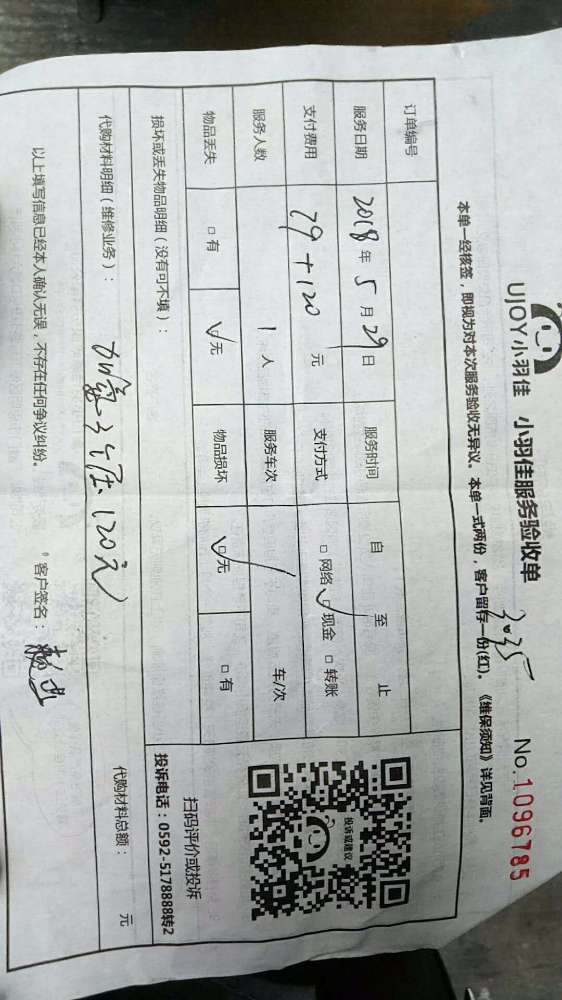 UJOY小羽佳 小羽佳服务验收单 No.1096785
本单一经核签，即视为对本次服务验收无异议。本单一式两份，客户留存一份(红)。《维保须知》详见背面。
订单编号
服务日期 2018年5月29日 服务时间 自 至 止
支付费用 79+120 元 支付方式 □网络 ☑现金 □转账
服务人数 1人 服务车次 / 车/次
物品丢失 □有 ☑无 物品损坏 ☑无 □有
损坏或丢失物品明细（没有可不填）：
投诉或建议
扫码评价或投诉
投诉电话：0592-5178888转2
代购材料明细（维修业务）： 120元 代购材料总额： 元
以上填写信息已经本人确认无误，不存在任何争议纠纷。 客户签名：